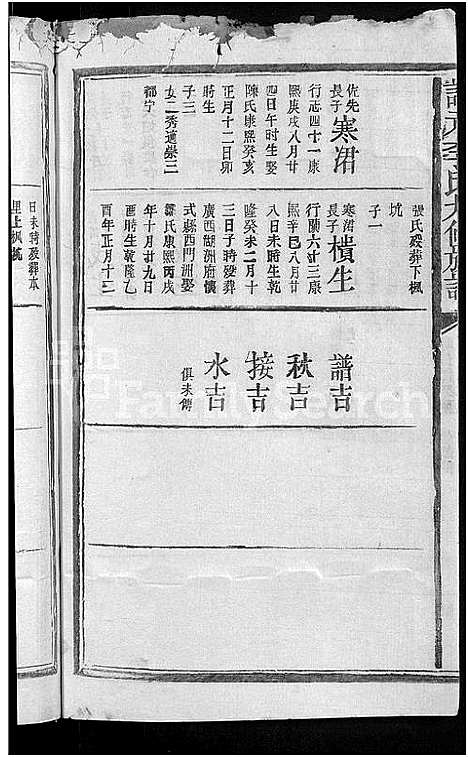 張氏歿葬下楓
坑
子一
佐先
長子
寒涒
行志四十一康
熙庚戌八月廿
四日午时生娶
陳氏康熙癸亥
正月十二日卯
時生
子三
女二秀適崇三
都宁
寒涒
長子
積生
行蘭六廿三康
熙辛巳八月廿
八日未時生乾
隆癸未二月十
三日子時歿葬
廣西湖洲府懷
式縣西門洲娶
氏康熙丙戌
年十月廿九日
酉時生乾隆乙
酉年正月十二
譜吉
秋吉
接吉
水吉
俱未傳
日未時歿葬本
里上楓坑
FamilySearch